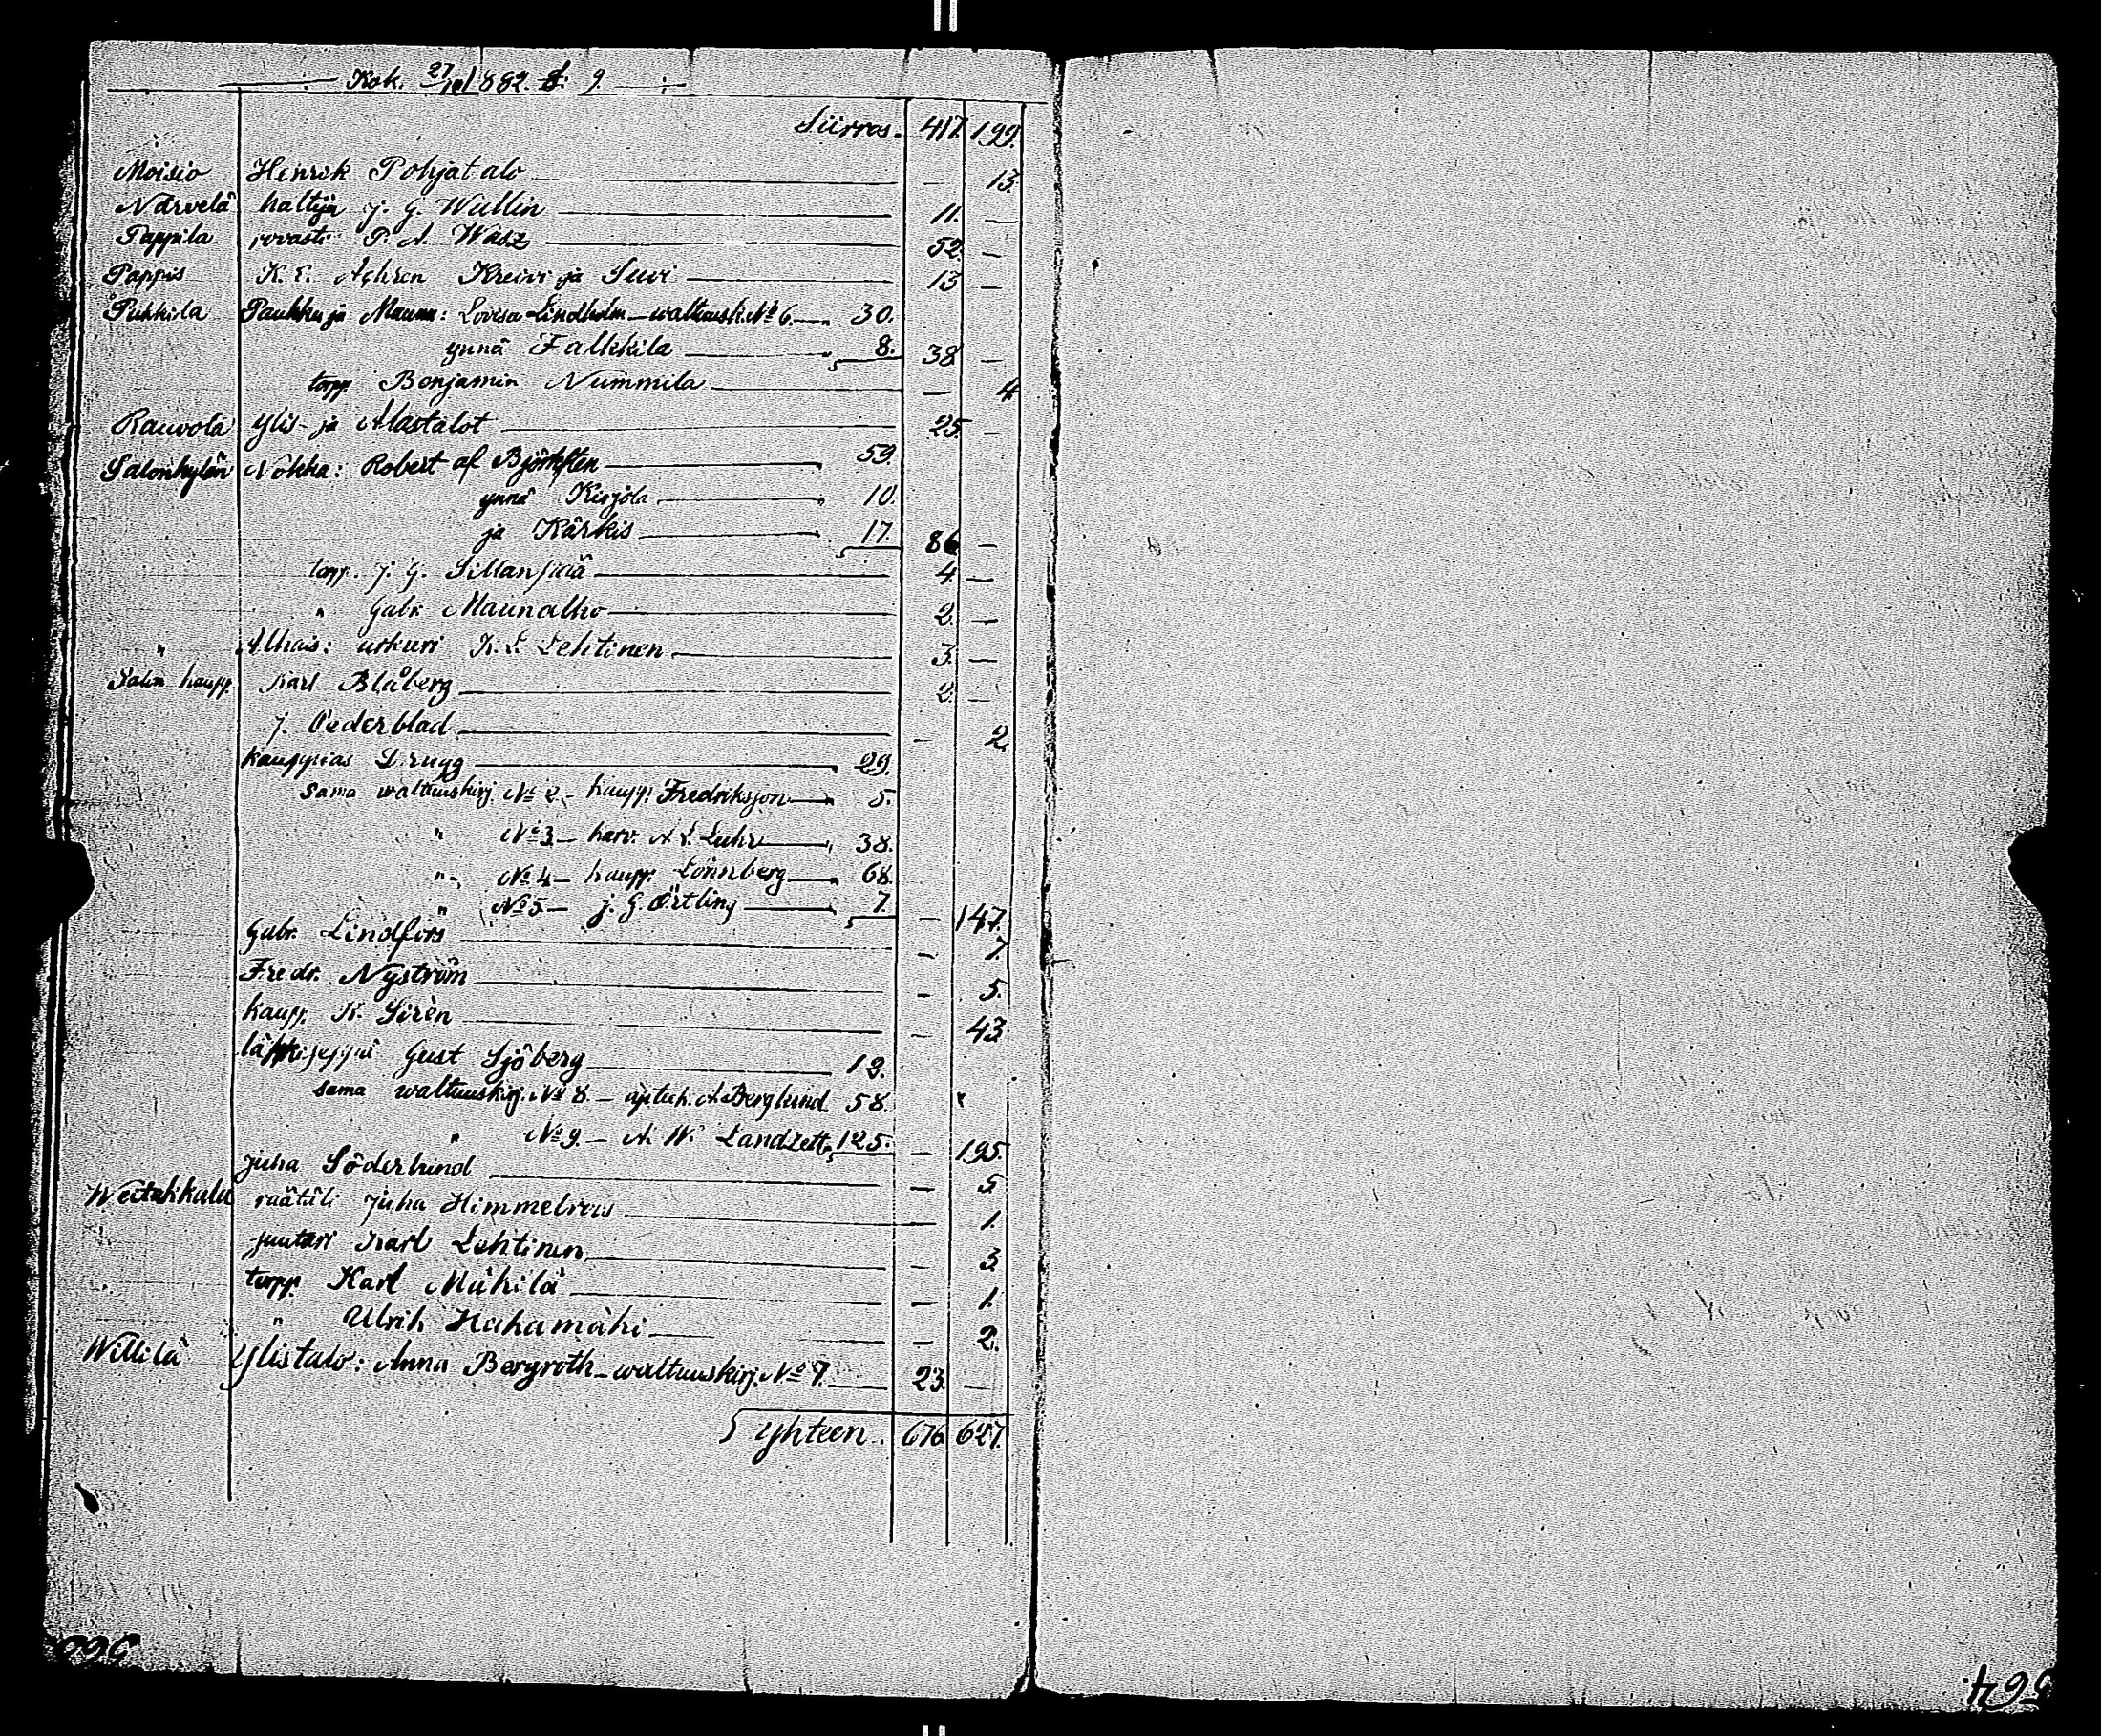 Kok. 27/10 1882. S. 9.
Siirros. 417. 199.
Moisio Henrik Pohjatalo — 13.
Närvelä haltija J. G. Wallin 11. —
Pappila rovasti P. A. Wasz 52. —
Pappis K. E. Ahren Kreivi ja Suvi 13 —
Pukkila Paukku ja Maunu: Lovisa Lindholm — waltuusk. No 6. 30.
ynnä Falkkila 8. 38 —
torpp. Benjamin Nummila — 4
Rauvola Ylis- ja Alastalot 25. —
Salonkylän Nokka: Robert af Björksten 59.
ynnä Kirjola 10.
ja Kärkis 17. 86 —
torpp. J. G. Sillanpää 4 —
" Gabr. Maunalho 2. —
" Alhais: urkuri K. L. Lehtinen 3. —
Salon kaupp. Karl Blåberg 2. —
J. Cederblad — 2.
kauppias Drugg 29.
sama waltuuskirj. No 2 — kaupp. Fredriksson 5.
" No 3 — harv. A. L. Luhr 38.
" No 4 — kaupp. Lönnberg 68.
" No 5 — J. G. Örtling 7. — 147.
Gabr. Lindfors — 7.
Fredr. Nyström — 5.
kaupp. K. Sirèn — 43.
läkkiseppä Gust Sjöberg 12.
sama waltuuskirj. No 8. — aptek. A. Berglund 58.
" No 9. — A. W. Landzett 125. — 195.
Juha Söderlund — 5.
Weitakkala räätäli Juha Himmelroos — 1.
" suutari Karl Lehtinen — 3.
" torpp. Karl Mäkilä — 1.
" Ulrik Hakamäki — 2.
Willilä Ylistalo: Anna Bergroth — waltuuskirj. No 7. 23. —
Yhteen. 676. 627.
564.